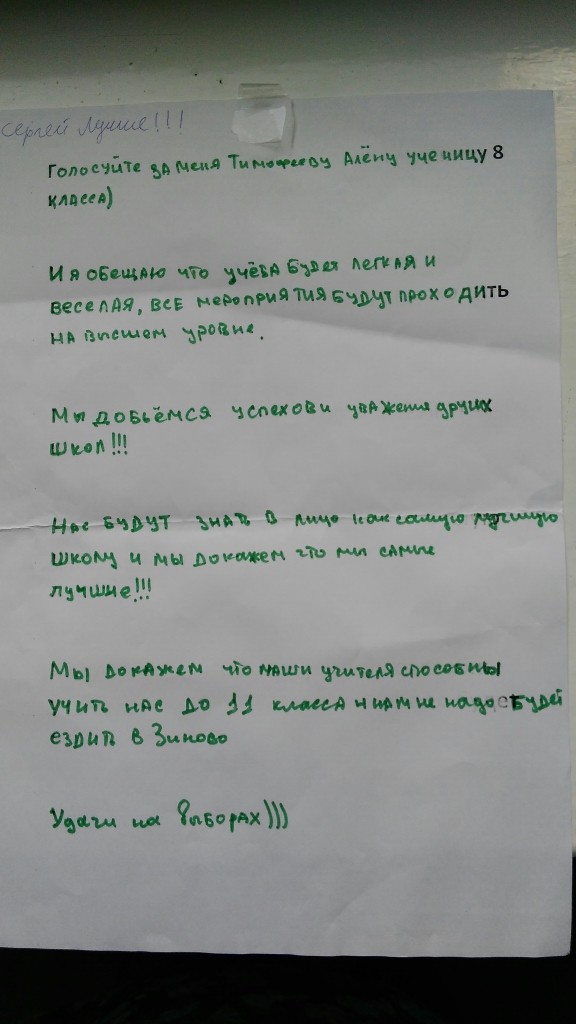 Сергей Лучше!!!
Голосуйте за меня Тимофееву Алёну ученицу 8
класса)
И я обещаю что учёба будет легкая и
веселая, все мероприятия будут проходить
на высшем уровне.
Мы добьёмся успехов и уважения других
школ!!!
Нас будут знать в лицо как самую лучшую
школу и мы докажем что мы самые
лучшие!!!
Мы докажем что наши учителя способны
учить нас до 11 класса и нам не надо будет
ездить в Зиново
Удачи на выборах)))